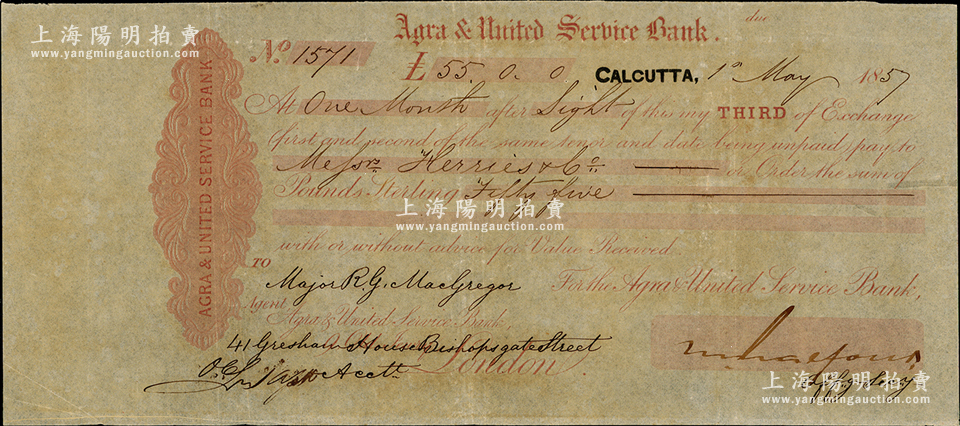 Agra & United Service Bank.
due
No. 1571
£ 55. 0. 0
CALCUTTA, 1st May 1857
At One Month after Sight of this my THIRD of Exchange
(first and second of the same tenor and date being unpaid) pay to
Messrs. Herries & Co. or Order the sum of
Pounds Sterling Fifty five
with or without advice for Value Received.
TO
Major R. G. MacGregor
For the Agra & United Service Bank,
Agent
Agra & United Service Bank,
41 Gresham House Bishopsgate Street
London
Acctt
AGRA & UNITED SERVICE BANK.
上海陽明拍賣
www.yangmingauction.com
上海陽明拍賣
www.yangmingauction.com
上海陽明拍賣
www.yangmingauction.com
上海陽明拍賣
www.yangmingauction.com